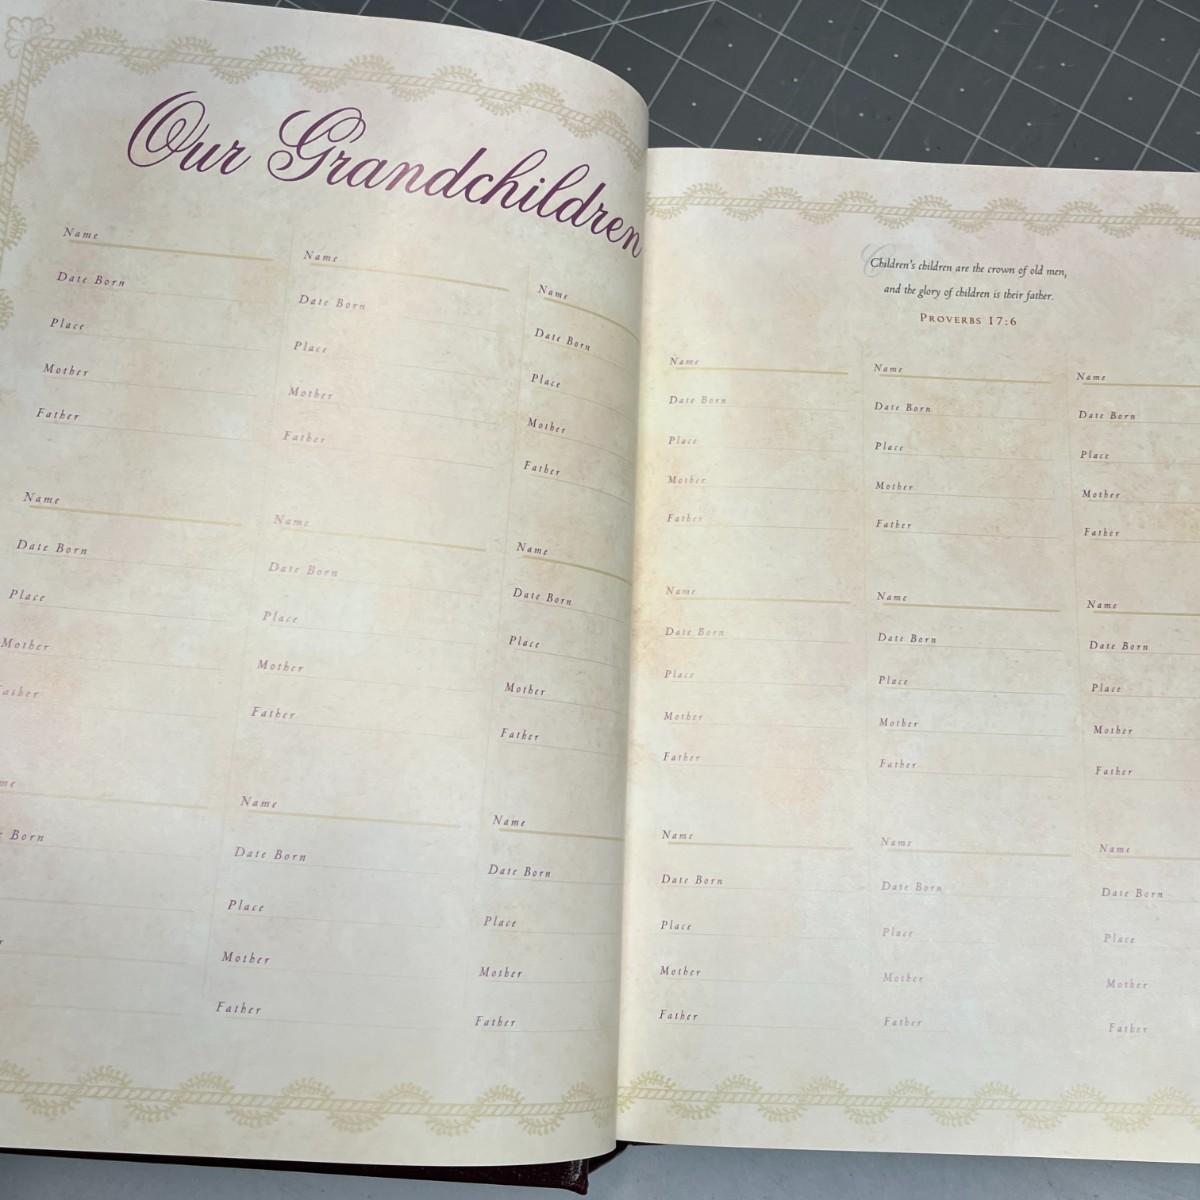 Our Grandchildren
Name
Date Born
Place
Mother
Father
Name
Date Born
Place
Mother
Father
Name
Date Born
Place
Mother
Father
Name
Date Born
Place
Mother
Father
Name
Date Born
Place
Mother
Father
Name
Date Born
Place
Mother
Father
Born
Name
Date Born
Place
Mother
Father
Name
Date Born
Place
Mother
Father
Children's children are the crown of old men,
and the glory of children is their father.
Proverbs 17:6
Name
Date Born
Place
Mother
Father
Name
Date Born
Place
Mother
Father
Name
Date Born
Place
Mother
Father
Name
Date Born
Place
Mother
Father
Name
Date Born
Place
Mother
Father
Name
Date Born
Place
Mother
Father
Name
Date Born
Place
Mother
Father
Name
Date Born
Place
Mother
Father
Name
Date Born
Place
Mother
Father